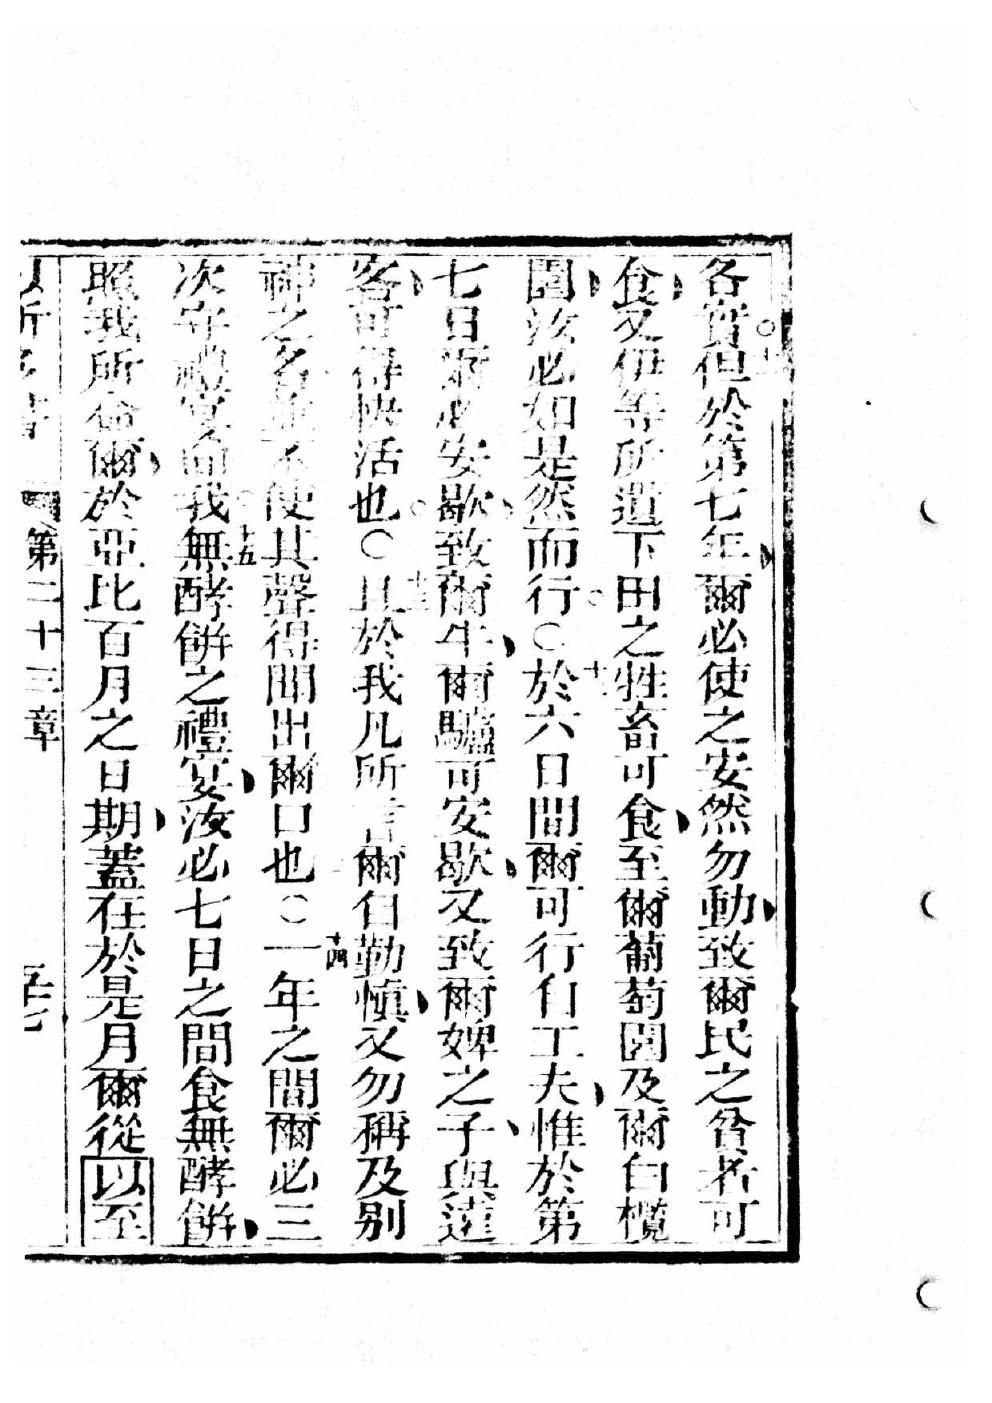 各實但於第七年爾必使之安然勿動致爾民之貧者可
食又伊等所遺下田之牲畜可食至爾葡萄園及爾白欖
園汝必如是然而行○於六日間爾可行自工夫惟於第
七日爾必安歇致爾牛爾驢可安歇又致爾婢之子與遠
客可得快活也○且於我凡所言爾自勤慎又勿稱及别
神之名並不使其聲得聞出爾口也○一年之間爾必三
次守禮宴向我無酵餅之禮宴汝必七日之間食無酵餅
照我所命爾於亞比百月之日期蓋在於是月爾從以至
第二十三章